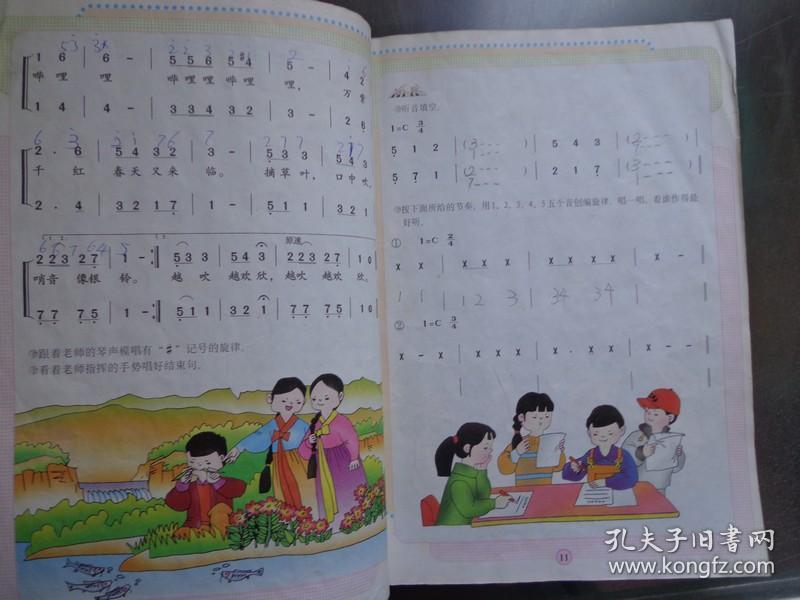 1 6 | 6 - | 5 5 6 5 #4 | 5 - | 4 2
哗 哩 哩 哗哩 哩哗 哩, 万 紫
1 4 | 4 - | 3 3 4 3 2 | 3 - | 2 6
2 . 6 | 5 4 3 2 | 3 - | 2 3 3 | 5 4 3
千 红 春天 又来 临。 摘草叶, 口中吹,
2 . 4 | 3 2 1 2 | 1 - |
2 2 3 2 7 | 1 - :| 5 3 3 | 5 4 3 | 2 2 3 2 7 | 1 0
原速
哨音 像银 铃。 越 吹 越欢 欣, 越吹 越欢 欣。
7 7 7 5 | 1 - :| 5 1 1 | 3 2 1 | 7 7 7 5 | 1 0
跟着老师的琴声模唱有“#”记号的旋律。
看着老师指挥的手势唱好结束句。
听音填空。
1=C 3/4
5 1 2 | ( ) | 5 4 3 | ( )
5 7 1 | ( ) | 2 1 7 | ( )
按下面所给的节奏,用1、2、3、4、5五个音创编旋律。唱一唱,看谁作得最
好听。
① 1=C 2/4
x x | x x x | x x x x | x x
1 1 | 1 2 3 | 3 4 3 4 |
② 1=C 3/4
x - x | x x x | x . x x | x - x
11
孔夫子旧书网
www.kongfz.com